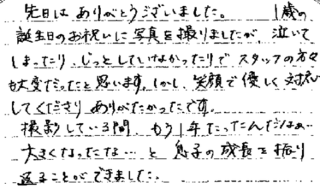 先日は ありがとうございました。 1歳の
誕生日のお祝いに写真を撮りましたが、泣いて
しまったり、じっとしていなかったりで スタッフの方々
も大変だったと思います。しかし、笑顔で優しく 対応
してくださり ありがたかったです。
撮影している間、もう1年たったんだなぁ
大きくなったな…と 息子の成長を振り
返ることができました。